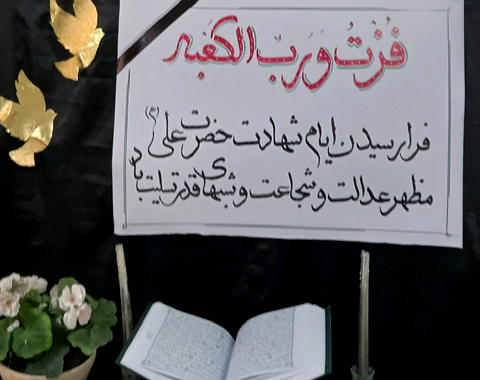 فُزْتُ وَ رَبِّ الْکَعْبَه
فرارسیدن ایام شهادت حضرت علی (ع)
مظهر عدالت و شجاعت و شبهای قدر تسلیت باد